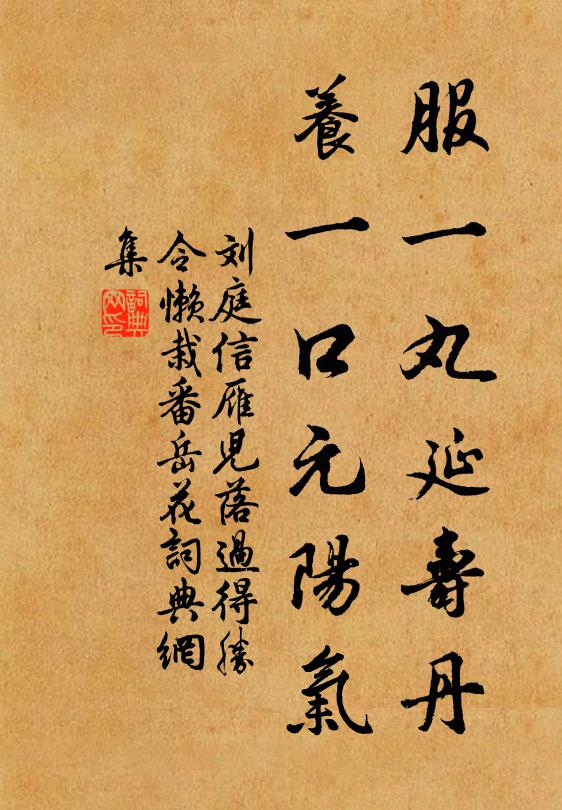 服一丸延壽丹
養一口元陽氣
刘庭信雁児落過得勝
令懒栽番岳花詞典網
集
詞典
网印